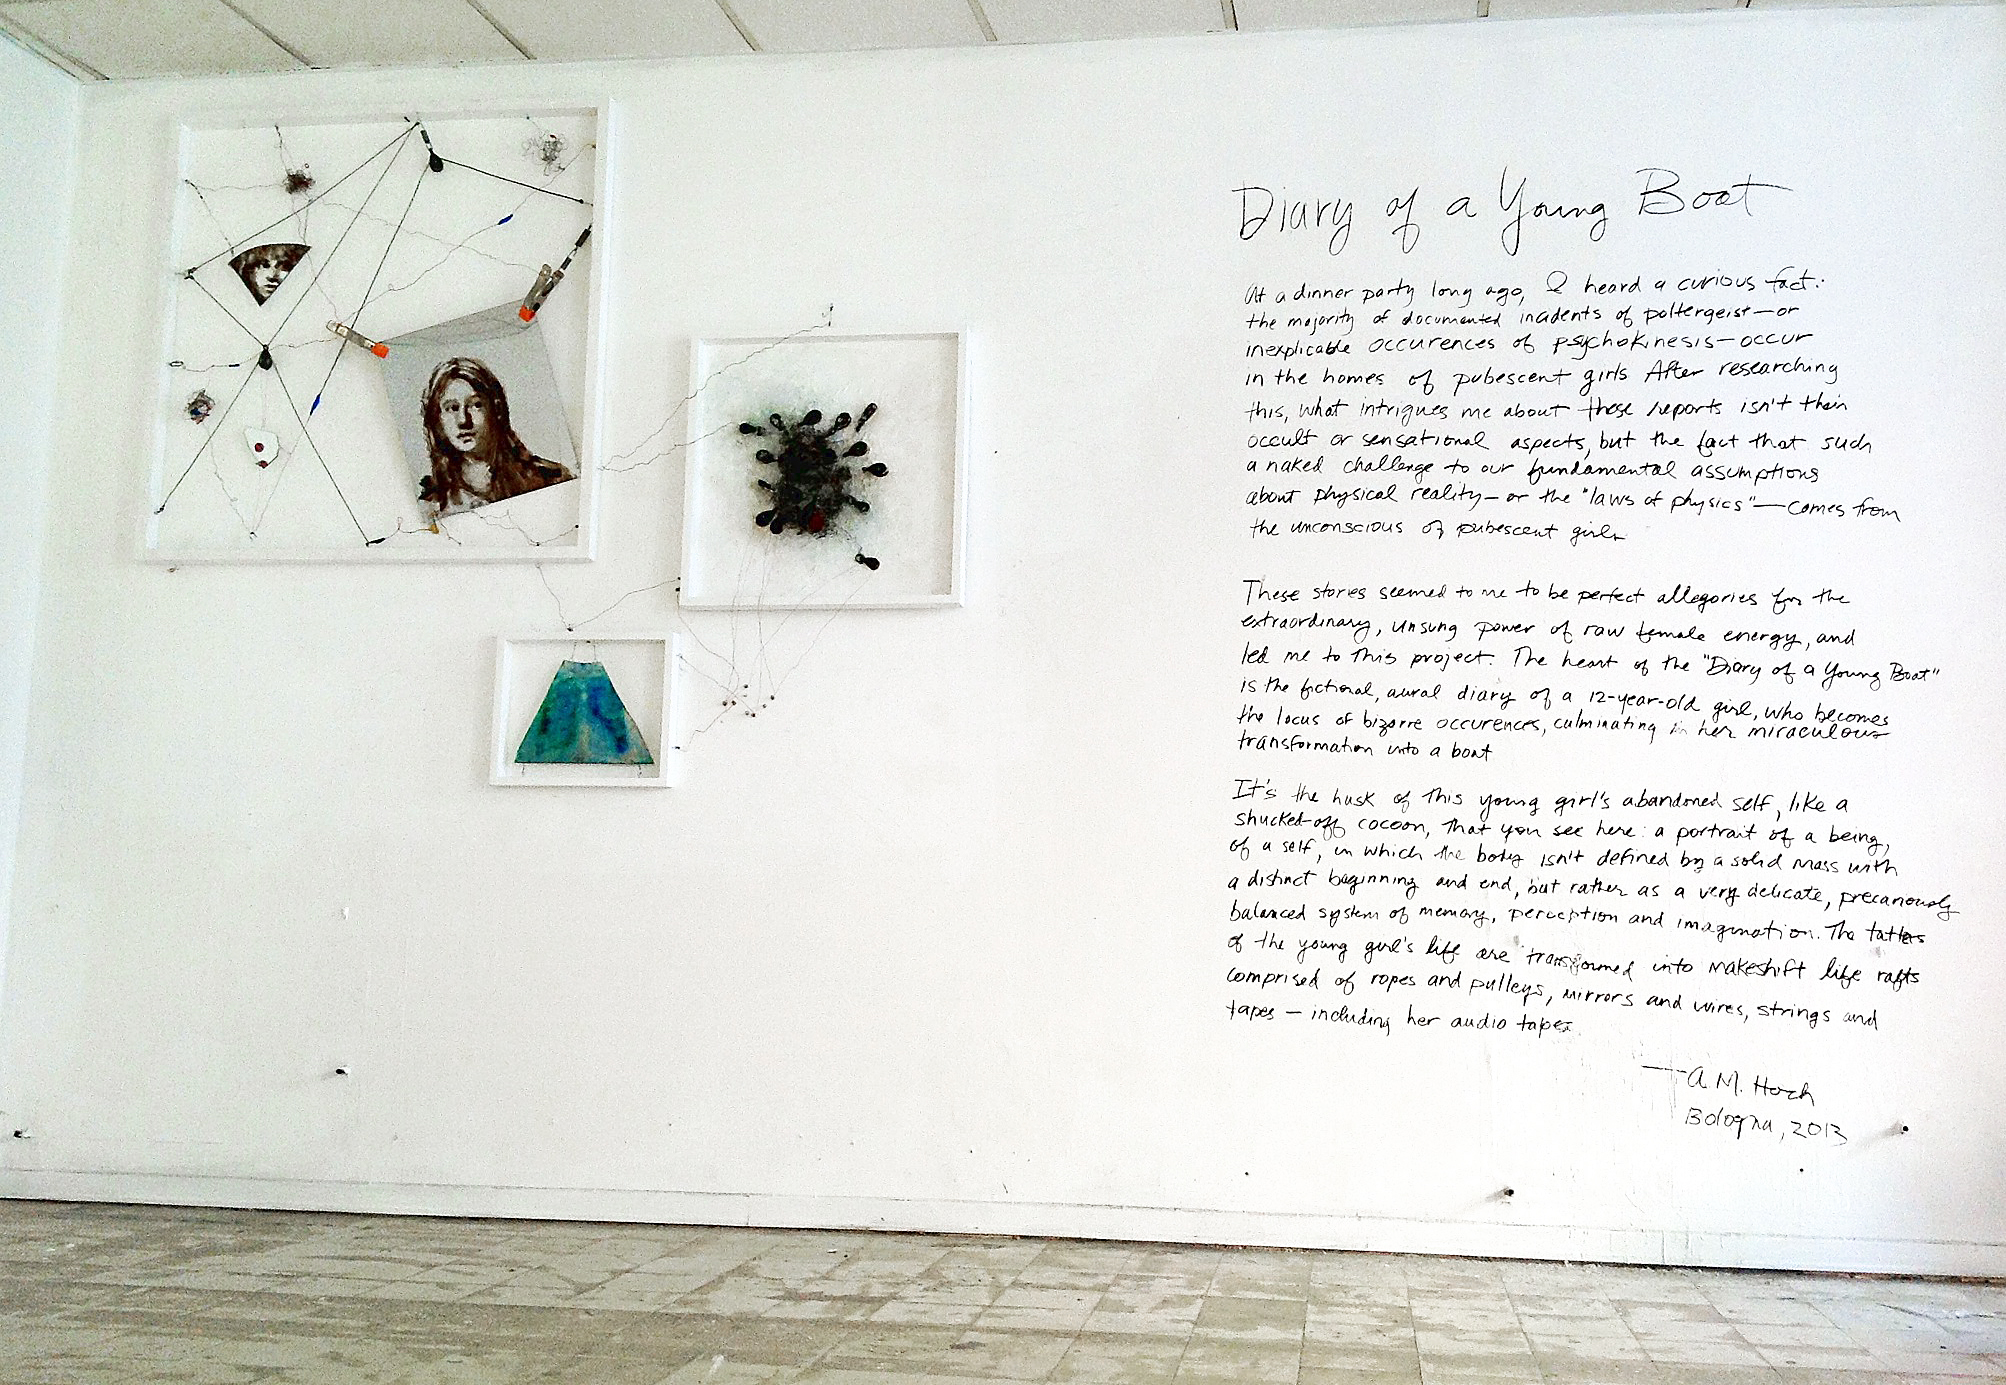 Diary of a Young Boat
At a dinner party long ago, I heard a curious fact:
the majority of documented incidents of poltergeist—or
inexplicable occurences of psychokinesis—occur
in the homes of pubescent girls After researching
this, what intrigues me about these reports isn't their
occult or sensational aspects, but the fact that such
a naked challenge to our fundamental assumptions
about physical reality—or the "laws of physics"—comes from
the unconscious of pubescent girls
These stories seemed to me to be perfect allegories for the
extraordinary, unsung power of raw female energy, and
led me to this project. The heart of the "Diary of a Young Boat"
is the fictional, aural diary of a 12-year-old girl, who becomes
the locus of bizarre occurences, culminating in her miraculous
transformation into a boat
It's the husk of this young girl's abandoned self, like a
shucked-off cocoon, that you see here: a portrait of a being,
of a self, in which the body isn't defined by a solid mass with
a distinct beginning and end, but rather as a very delicate, precariously
balanced system of memory, perception and imagination. The tatters
of the young girl's life are transformed into makeshift life rafts
comprised of ropes and pulleys, mirrors and wires, strings and
tapes — including her audio tapes
— A. M. Hoch
Bologna, 2013